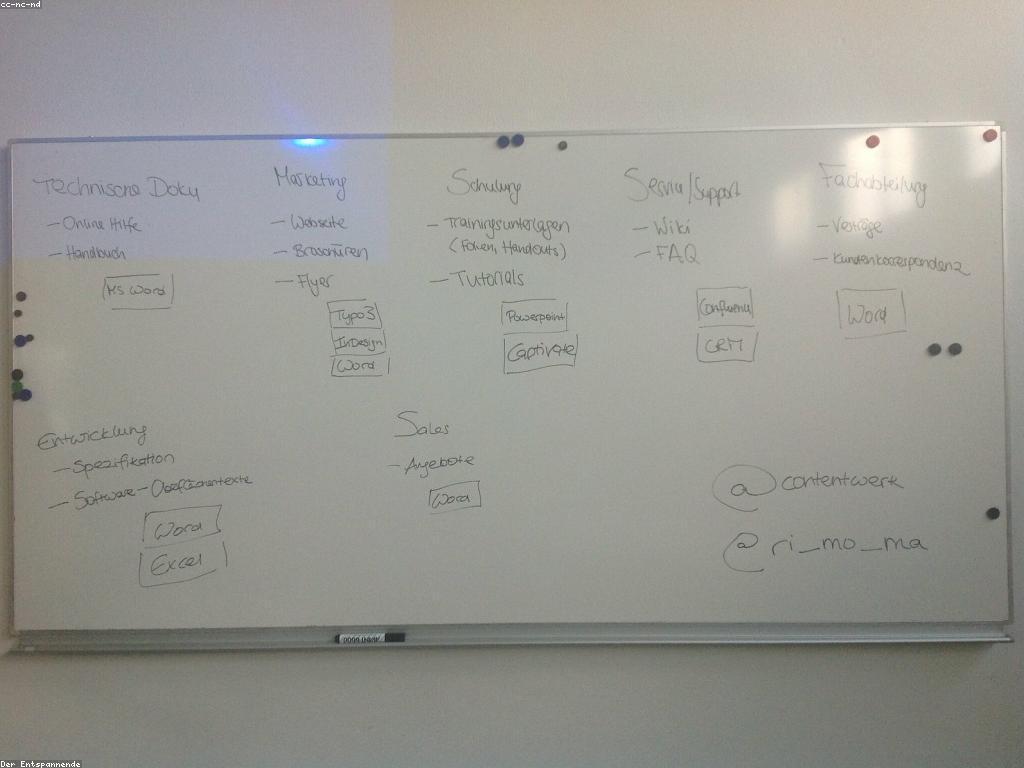 cc-nc-nd
Technische Doku
- Online Hilfe
- Handbuch
MS Word
Marketing
- Webseite
- Broschüren
- Flyer
Typo3
InDesign
Word
Schulung
- Trainingsunterlagen
(Folien, Handouts)
- Tutorials
Powerpoint
Captivate
Service/Support
- Wiki
- FAQ
Confluence
CRM
Fachabteilung
- Verträge
- Kundenkorrespondenz
Word
Entwicklung
- Spezifikation
- Software-Oberflächentexte
Word
Excel
Sales
- Angebote
Word
@contentwerk
@ri_mo_ma
Der Entspannende